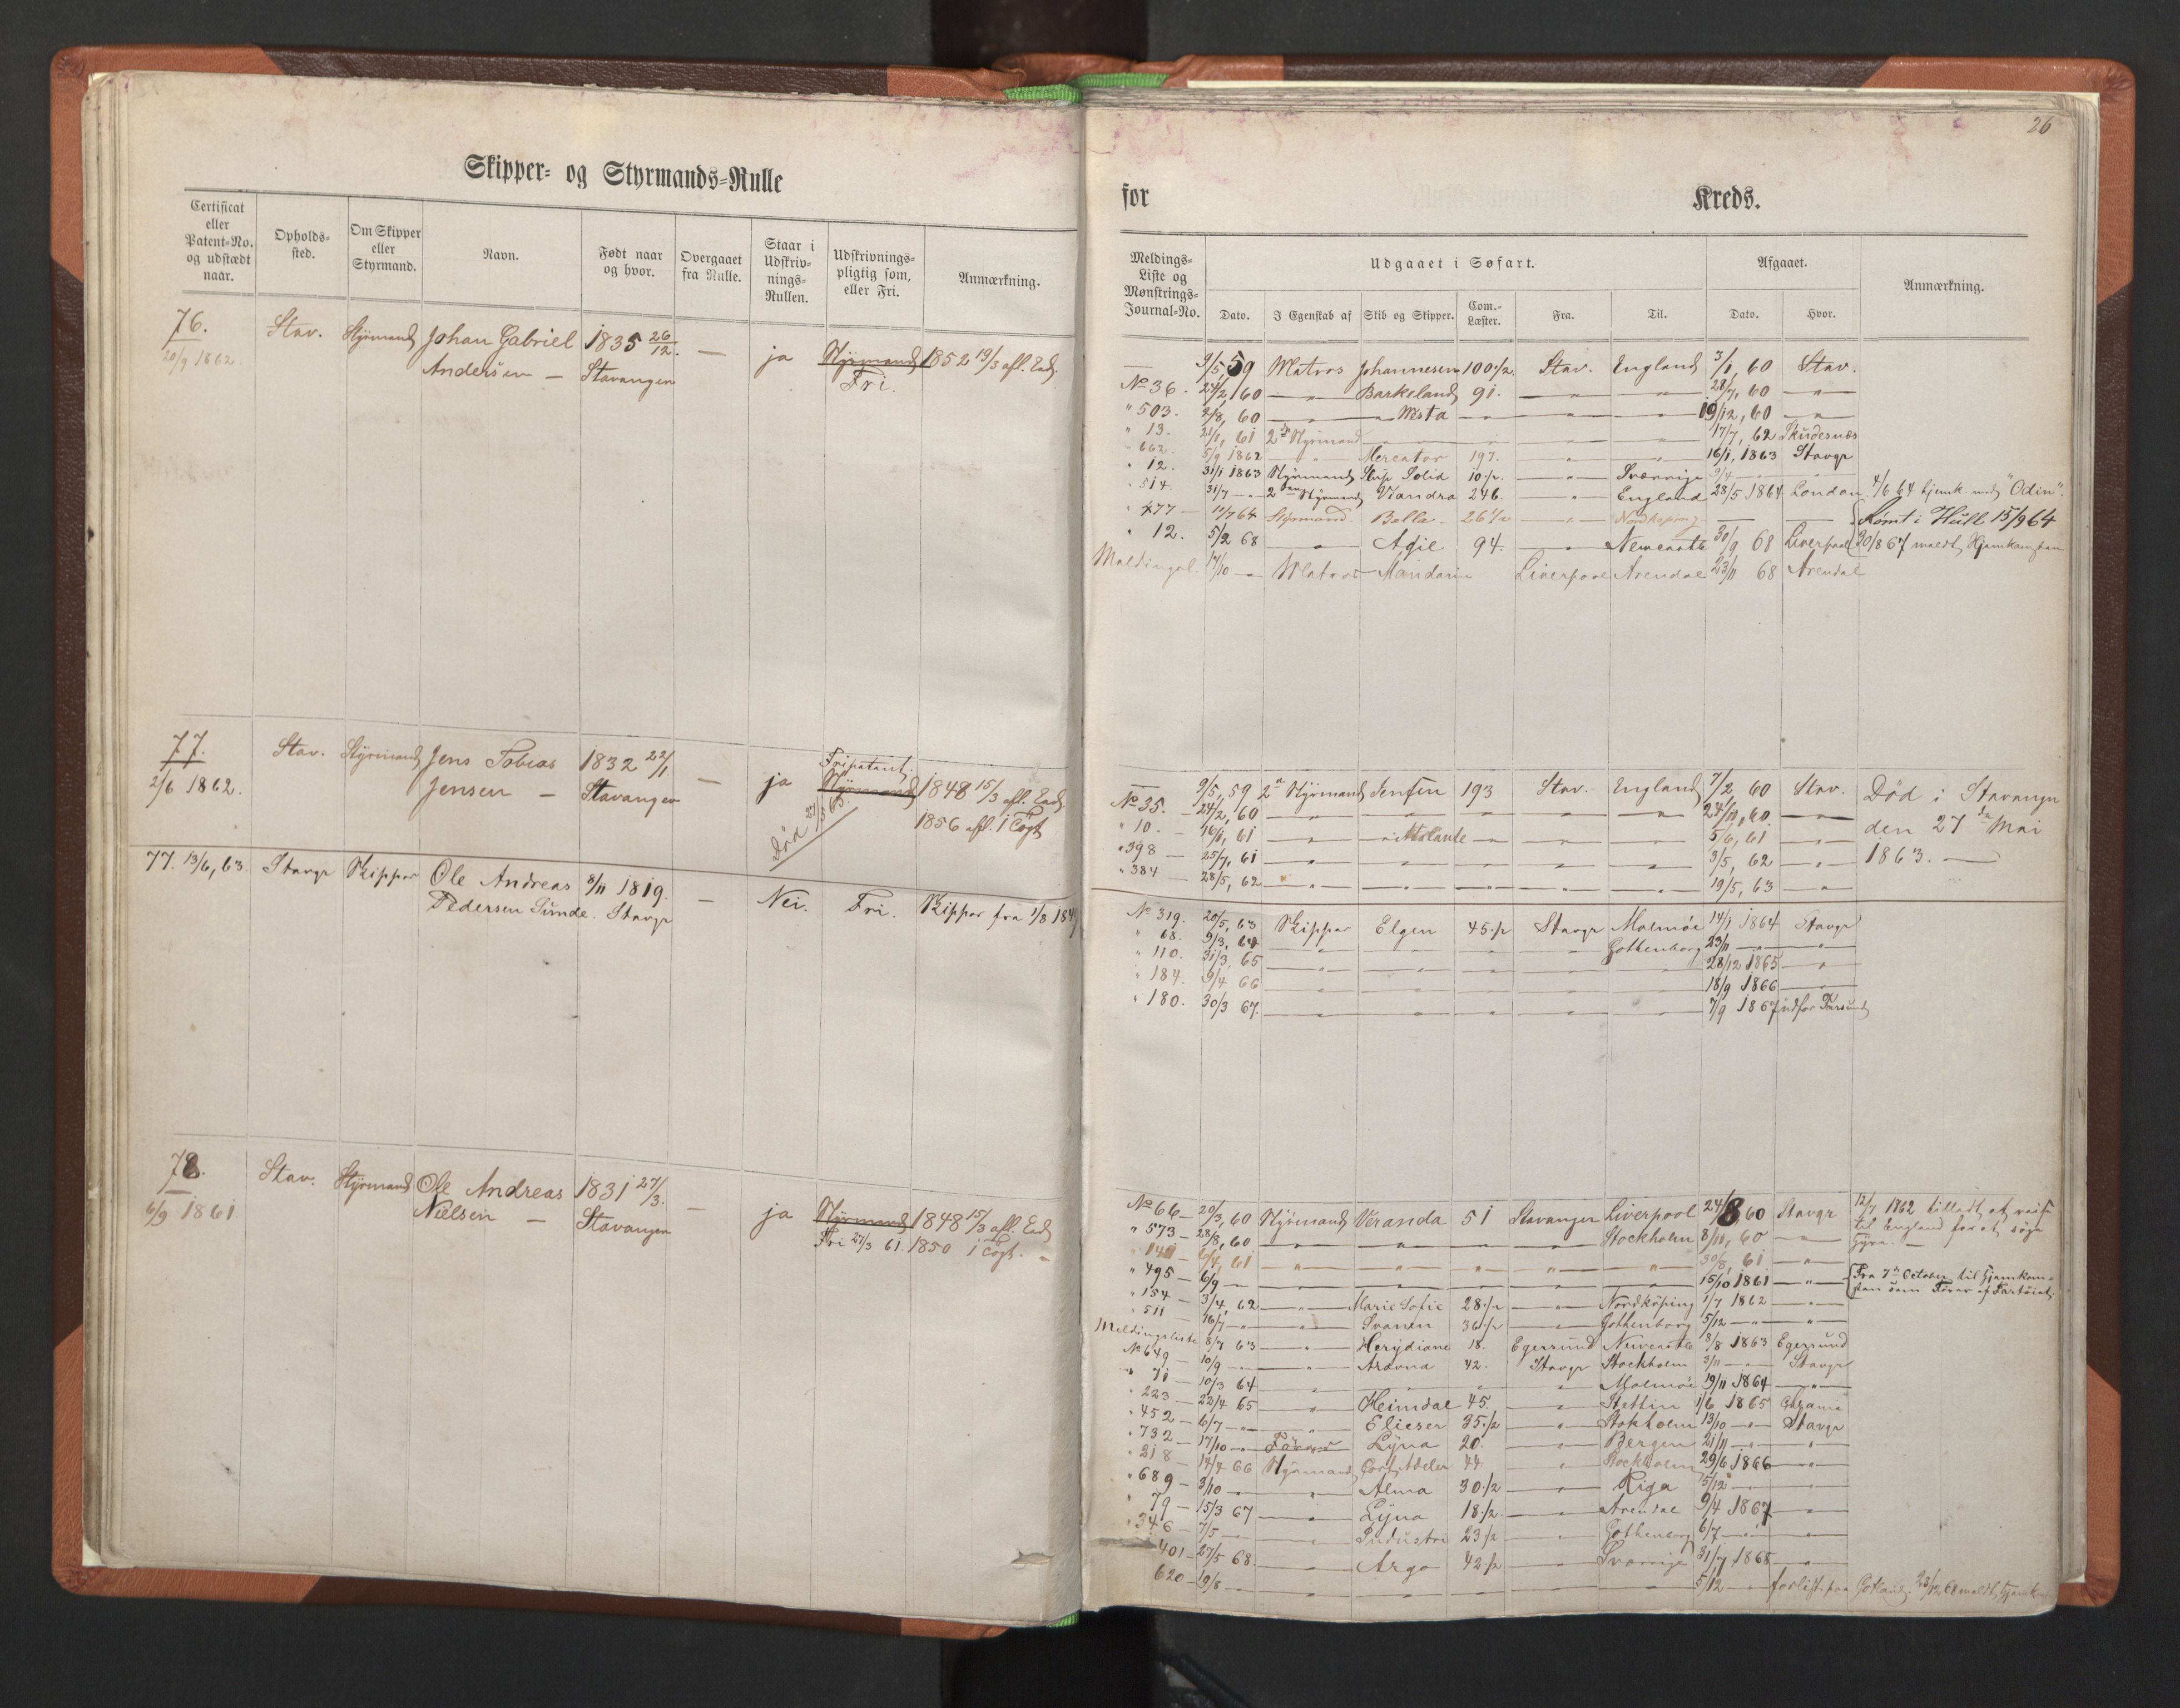 26
Skipper- og Styrmands-Rulle
for Kreds.
Certificat eller Patent-No. og udstædt naar.
Opholds-sted.
Om Skipper eller Styrmand.
Navn.
Født naar og hvor.
Overgaaet fra Rulle.
Staar i Udskriv-nings-Rullen.
Udskrivnings-pligtig som, eller Fri.
Anmærkning.
Meldings-Liste og Mønstrings-Journal-No.
Udgaaet i Søfart.
Afgaaet.
Anmærkning.
Dato. I Egenskab af Skib og Skipper. Com.-Læster. Fra. Til. Dato. Hvor.
76. Stav. Styrmand Johan Gabriel 1835 26/12. — ja Styrmand 1852 19/3 afl. Ed.
20/9 1862. Andersen — Stavanger Fri.
— 9/5, 59 Matros Johannesen 100 1/2. Stav. England 3/1, 60 Stav.
No 36. 24/2, 60 — " — Barkeland 91. — " — — " — 28/7, 60 — " —
" 503. 2/8, 60 — " — — " — Msta — " — — " — 19/12, 60 — " —
" 13. 21/1, 61 2den Styrmand — " — " — " — — " — 17/7, 62 Skudesnæs
" 662. 5/9 1862 — " — Mercator 197. — " — — " — 16/1, 1863 Stavgr
" 12. 31/1 1863 Styrmand Slup Solid 10 1/2. — " — Sverrige 9/4 — " — — " —
" 514. 31/7 — " — 2den Styrmand Viandra 246. — " — England 28/5 1864 London 4/6 64 hjemk. med "Odin".
" 477 — 11/7 64 Styrmand. Bella — 26 1/2 — " — Nordkøping — — Rømt i Hull 15/9 64
" 12. 5/2 68 — " — Agie 94. — " — Newcastle 30/9 68 Liverpool 20/8 67 meldt Hjemkomsten
Meldingsl. 17/10 — " — Matros Mandarin Liverpool Arendal 23/11 68 Arendal
77. Stav. Styrmand Jens Tobias 1832 22/1 — ja Fripatent. Styrmand 1848 15/3 afl. Ed.
2/6 1862. Jensen — Stavanger Død 27/5 63. 1856 afl. i Togt
— 9/5, 59 2n Styrmand Jensen 193 Stav. England 7/2, 60 Stav. Død i Stavanger
No 35. — 24/2, 60 — " — — " — — " — — " — — " — 24/11, 60. — " — den 27de Mai
" 10. — 16/1, 61 — " — — " — Atlante — " — — " — — " — 5/6, 61 — " — 1863. —
" 398 — 25/7, 61 — " — — " — — " — — " — — " — 3/5, 62 — " —
" 384 — 28/5, 62 — " — — " — — " — — " — — " — 19/5, 63 — " —
77. 13/6, 63. Stavgr Skipper Ole Andreas 8/11 1819. — Nei. Fri. Skipper fra 1/8 1849
Pedersen Sunde. Stavgr
No 319. 20/5, 63 Skipper Elgen 45 1/2 Stavgr Malmöe 14/1 1864 Stavgr
" 68. 9/3, 64 — " — — " — — " — — " — Gothenborg 23/11 — " — — " —
" 110. 31/3, 65 — " — — " — — " — — " — — " — 28/12 1865 — " —
" 184. 9/4 66 — " — — " — — " — — " — — " — 18/9 1866 — " —
" 180. 30/3 67. — " — — " — — " — — " — — " — 7/9 1867 udfor Farsund
78. Stav. Styrmand Ole Andreas 1831 27/3. — ja Styrmand 1848 15/3 afl. Ed
6/9 1861 Nielsen — Stavanger Fri 27/3 61. 1850 i Togt. —
No 66 — 20/3, 60 Styrmand Veranda 51 Stavanger Liverpool 24/8 60 Stavgr 12/7 1862 tilladt at reise
" 573 — 28/8, 60 — " — — " — — " — — " — Stockholm 8/11, 60 — " — til England for at søge
" 141 — 6/4, 61 — " — — " — — " — — " — — " — 30/8, 61 — " — Hyre. —
" 495 — 6/9 — — " — — " — — " — — " — — " — 15/10 1861 — " — Fra 7de October til Hjemkom-
" 154 — 3/4, 62 — " — Marie Sofie 28 1/2 — " — Nordköping 1/7 1862 — " — sten som Fører af Fartøiet.
" 511 — 16/7 — " — — " — Svanen 36 1/2 — " — Gothenborg 5/12 — " — — " —
Meldingsliste 8/7 63 — " — 18. Egersund Newcastle 8/8 1863 Egersund
No 649 — 10/9 — " — — " — 42. Stavgr Stockholm 3/11 — " — Stavgr
" 71 — 10/3 64 — " — — " — — " — — " — Malmöe 19/11 1864 — " —
" 223 — 22/4 65 — " — Heimdal 45. — " — Stettin 1/6 1865
" 452 — 6/7 — " — — " — Elieser 35 1/2 — " — Stokholm 13/10 — " — Stavgr
" 732 — 17/10 — " — Fører Lyna 20. — " — Bergen 21/11 — " — — " —
" 218 — 14/4 66 Styrmand Cort Adeler 44 — " — Stockholm 29/6 1866 — " —
" 689 — 3/10 — " — — " — Alma 30 1/2 — " — Riga 5/12 — " — — " —
" 79 — 15/3 67 — " — Lyna 18 1/2 — " — Arendal 9/4 1867 — " —
" 346 — 7/5 — — " — Industri 23 1/2 — " — Gothenborg 6/7 — " — — " —
401 — 27/5 68 — " — Argo 42 1/2 — " — Sverrige 31/7 1868 — " —
620 — 19/8 — — " — — " — — " — — " — — " — 5/12 — " — forlist paa Gotland. 23/12 68 meldt Hjemk